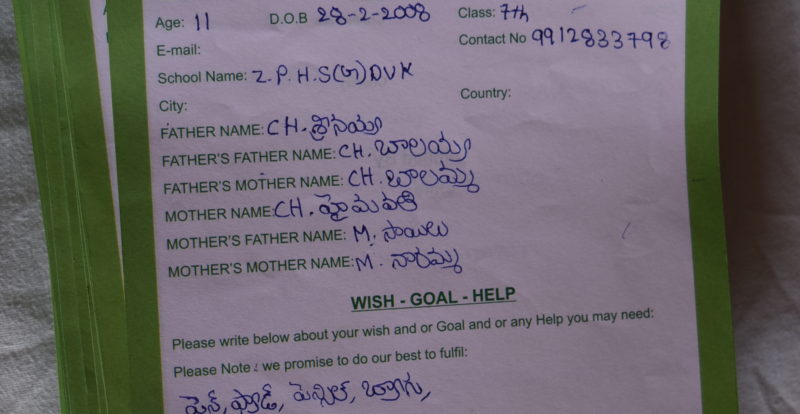 Age: 11 D.O.B 28-2-2008 Class: 7th
E-mail: Contact No 9912833798
School Name: Z.P.H.S(G)DVK
City: Country:
FATHER NAME: CH. శ్రీనయ్య
FATHER'S FATHER NAME: CH. బాలయ్య
FATHER'S MOTHER NAME: CH. బాలమ్మ
MOTHER NAME: CH. హైమవతి
MOTHER'S FATHER NAME: M. సాయిలు
MOTHER'S MOTHER NAME: M. నారమ్మ
WISH - GOAL - HELP
Please write below about your wish and or Goal and or any Help you may need:
Please Note: we promise to do our best to fulfil:
పెన్, ప్యాడ్, పెన్సిల్, బ్యాగు,